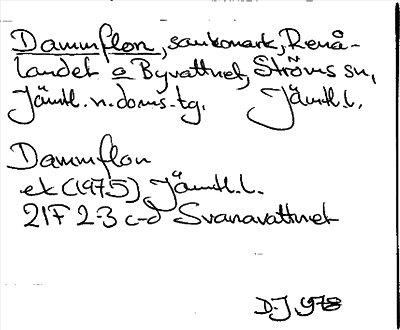 Dammflon, sankmark, Renå-
landet o Byvattnet, Ströms sn,
Jämtl. n. doms. tg. Jämtl. l.
Dammflon
ek (1975) Jämtl. l.
21F 2-3 c-d Svanavattnet
D.J 1978